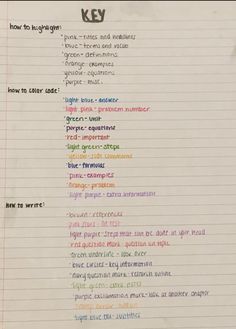 KEY
how to highlight:
• pink - titles and headlines
• blue - terms and vocab
• green - definitions
• orange - examples
• yellow - equations
• purple - misc.
how to color code:
• light blue - answer
• light pink - problem number
• green - unit
• purple - equations
• red - important
• light green - steps
• yellow - side comments
• blue - formulas
• pink - examples
• orange - problem
• light purple - extra information
how to write:
• brown - references
light purple - steps that can be done in your head
red question mark - question on topic
green underline - look over
blue circles - key information
navy question mark - research online
light green - extra
purple exclamation mark - look at another chapter
light blue - subtitles